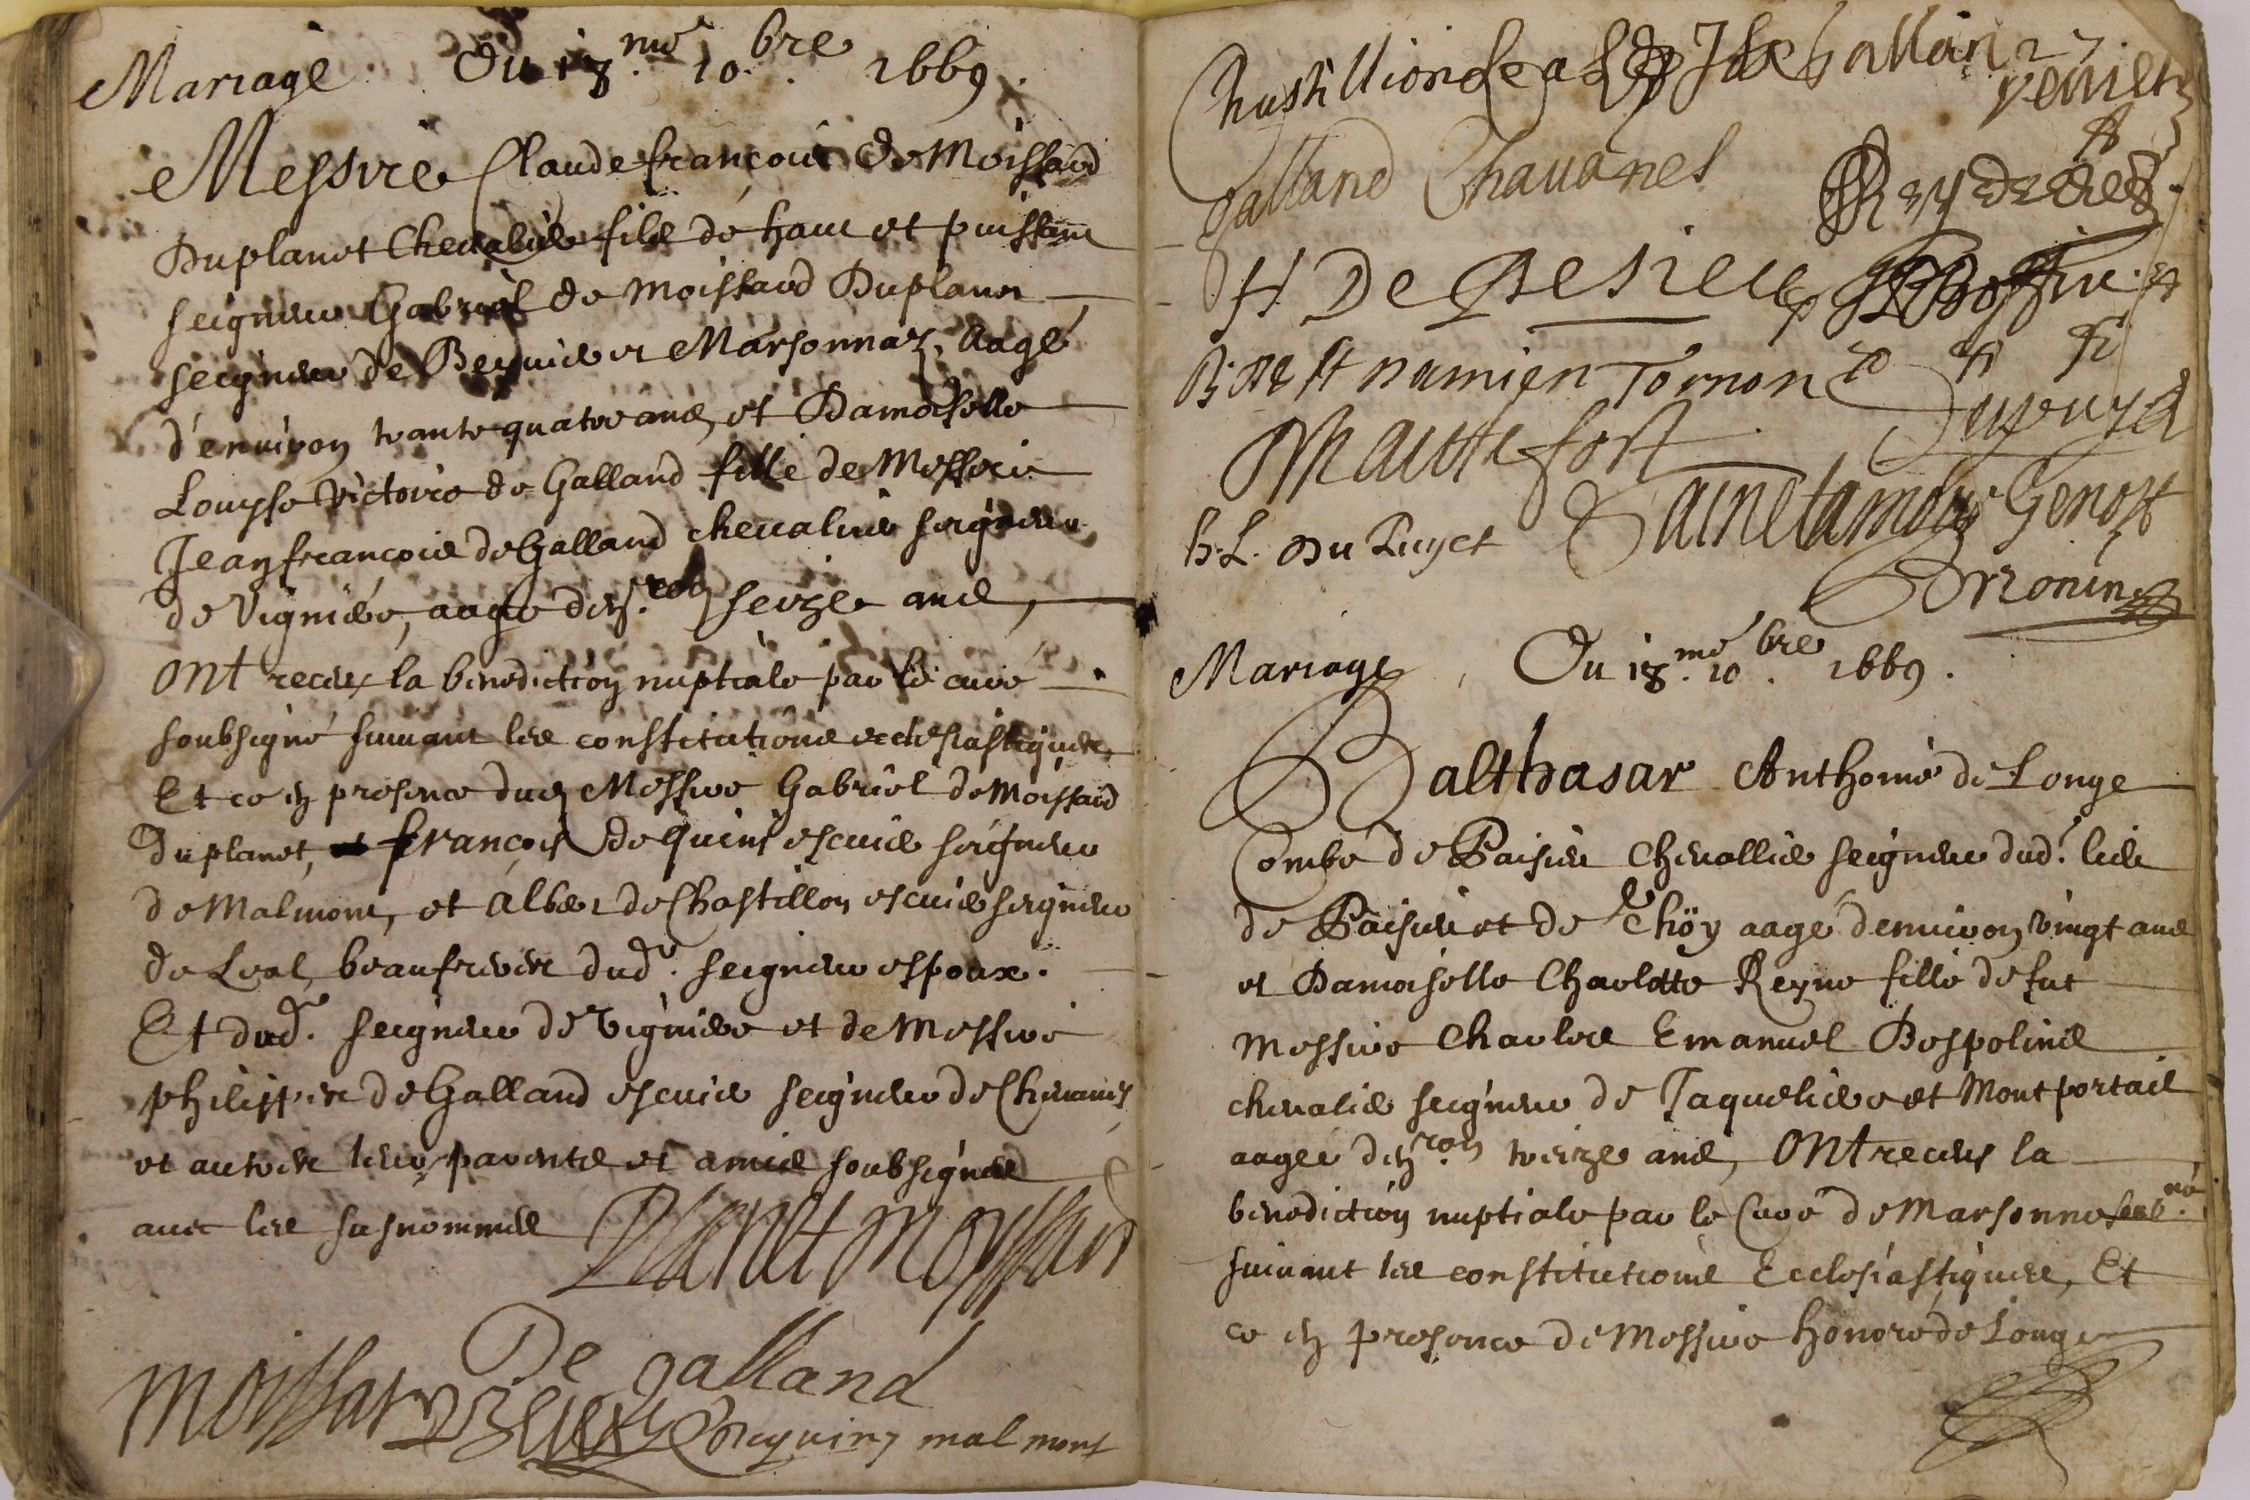 Mariage Du 18.me 10.bre 1669.
Messire Claude françois de Moissard
Duplanet Chevalier filz de haut et puissant
seigneur Gabriel de Moissard Duplanet
seigneur de Beyvier et Marsonnaz, aagé
d'environ trante quatre ans, et Damoiselle
Louyse Victoire de Galland fille de Messire
Jean françois de Galland chevalier seigneur
de Vignière, aagée d'en.ron seize ans,
ont receu la benediction nuptiale par le curé
soubsigné suivant les constitutions ecclesiastiques,
Et ce en presence dud Messire Gabriel de Moissard
duplanet, françois de quins escuier seigneur
de Malmont, et Alber de Chastillon escuier seigneur
de Leal, beaufrere dud. seigneur espoux.
Et dud. seigneur de Vigniere et de Messire
philippe de Galland escuier seigneur de Chavanes
et autres leurs parents et amis soubsignés
avec les susnommés Planet Moyssard
De galland
Moissard Dequins malmont
Chastillion de
galland Chavanes
H De Besieux
St namien Tornon Dupuys
Mautte fort
h. L. Du Puget Genost
Mariage, Du 18.me 10.bre 1669.
Balthasar Anthoine de Longe
Combe de Paisieu Chevallier seigneur dud. lieu
de Paisieu et de Thöy aagé d'environ vingt ans
et Damoiselle Charlotte Reyne fille de fut
Messire Charles Emanuel Bospolins
chevalier seigneur de Jaqueliere et Montportail
aagée d'en.ron treize ans, ont receu la
benediction nuptiale par le Curé de Marsonne soub.né
suivant les constitutions Ecclesiastiques, Et
ce en presence de Messire honoré de Longe